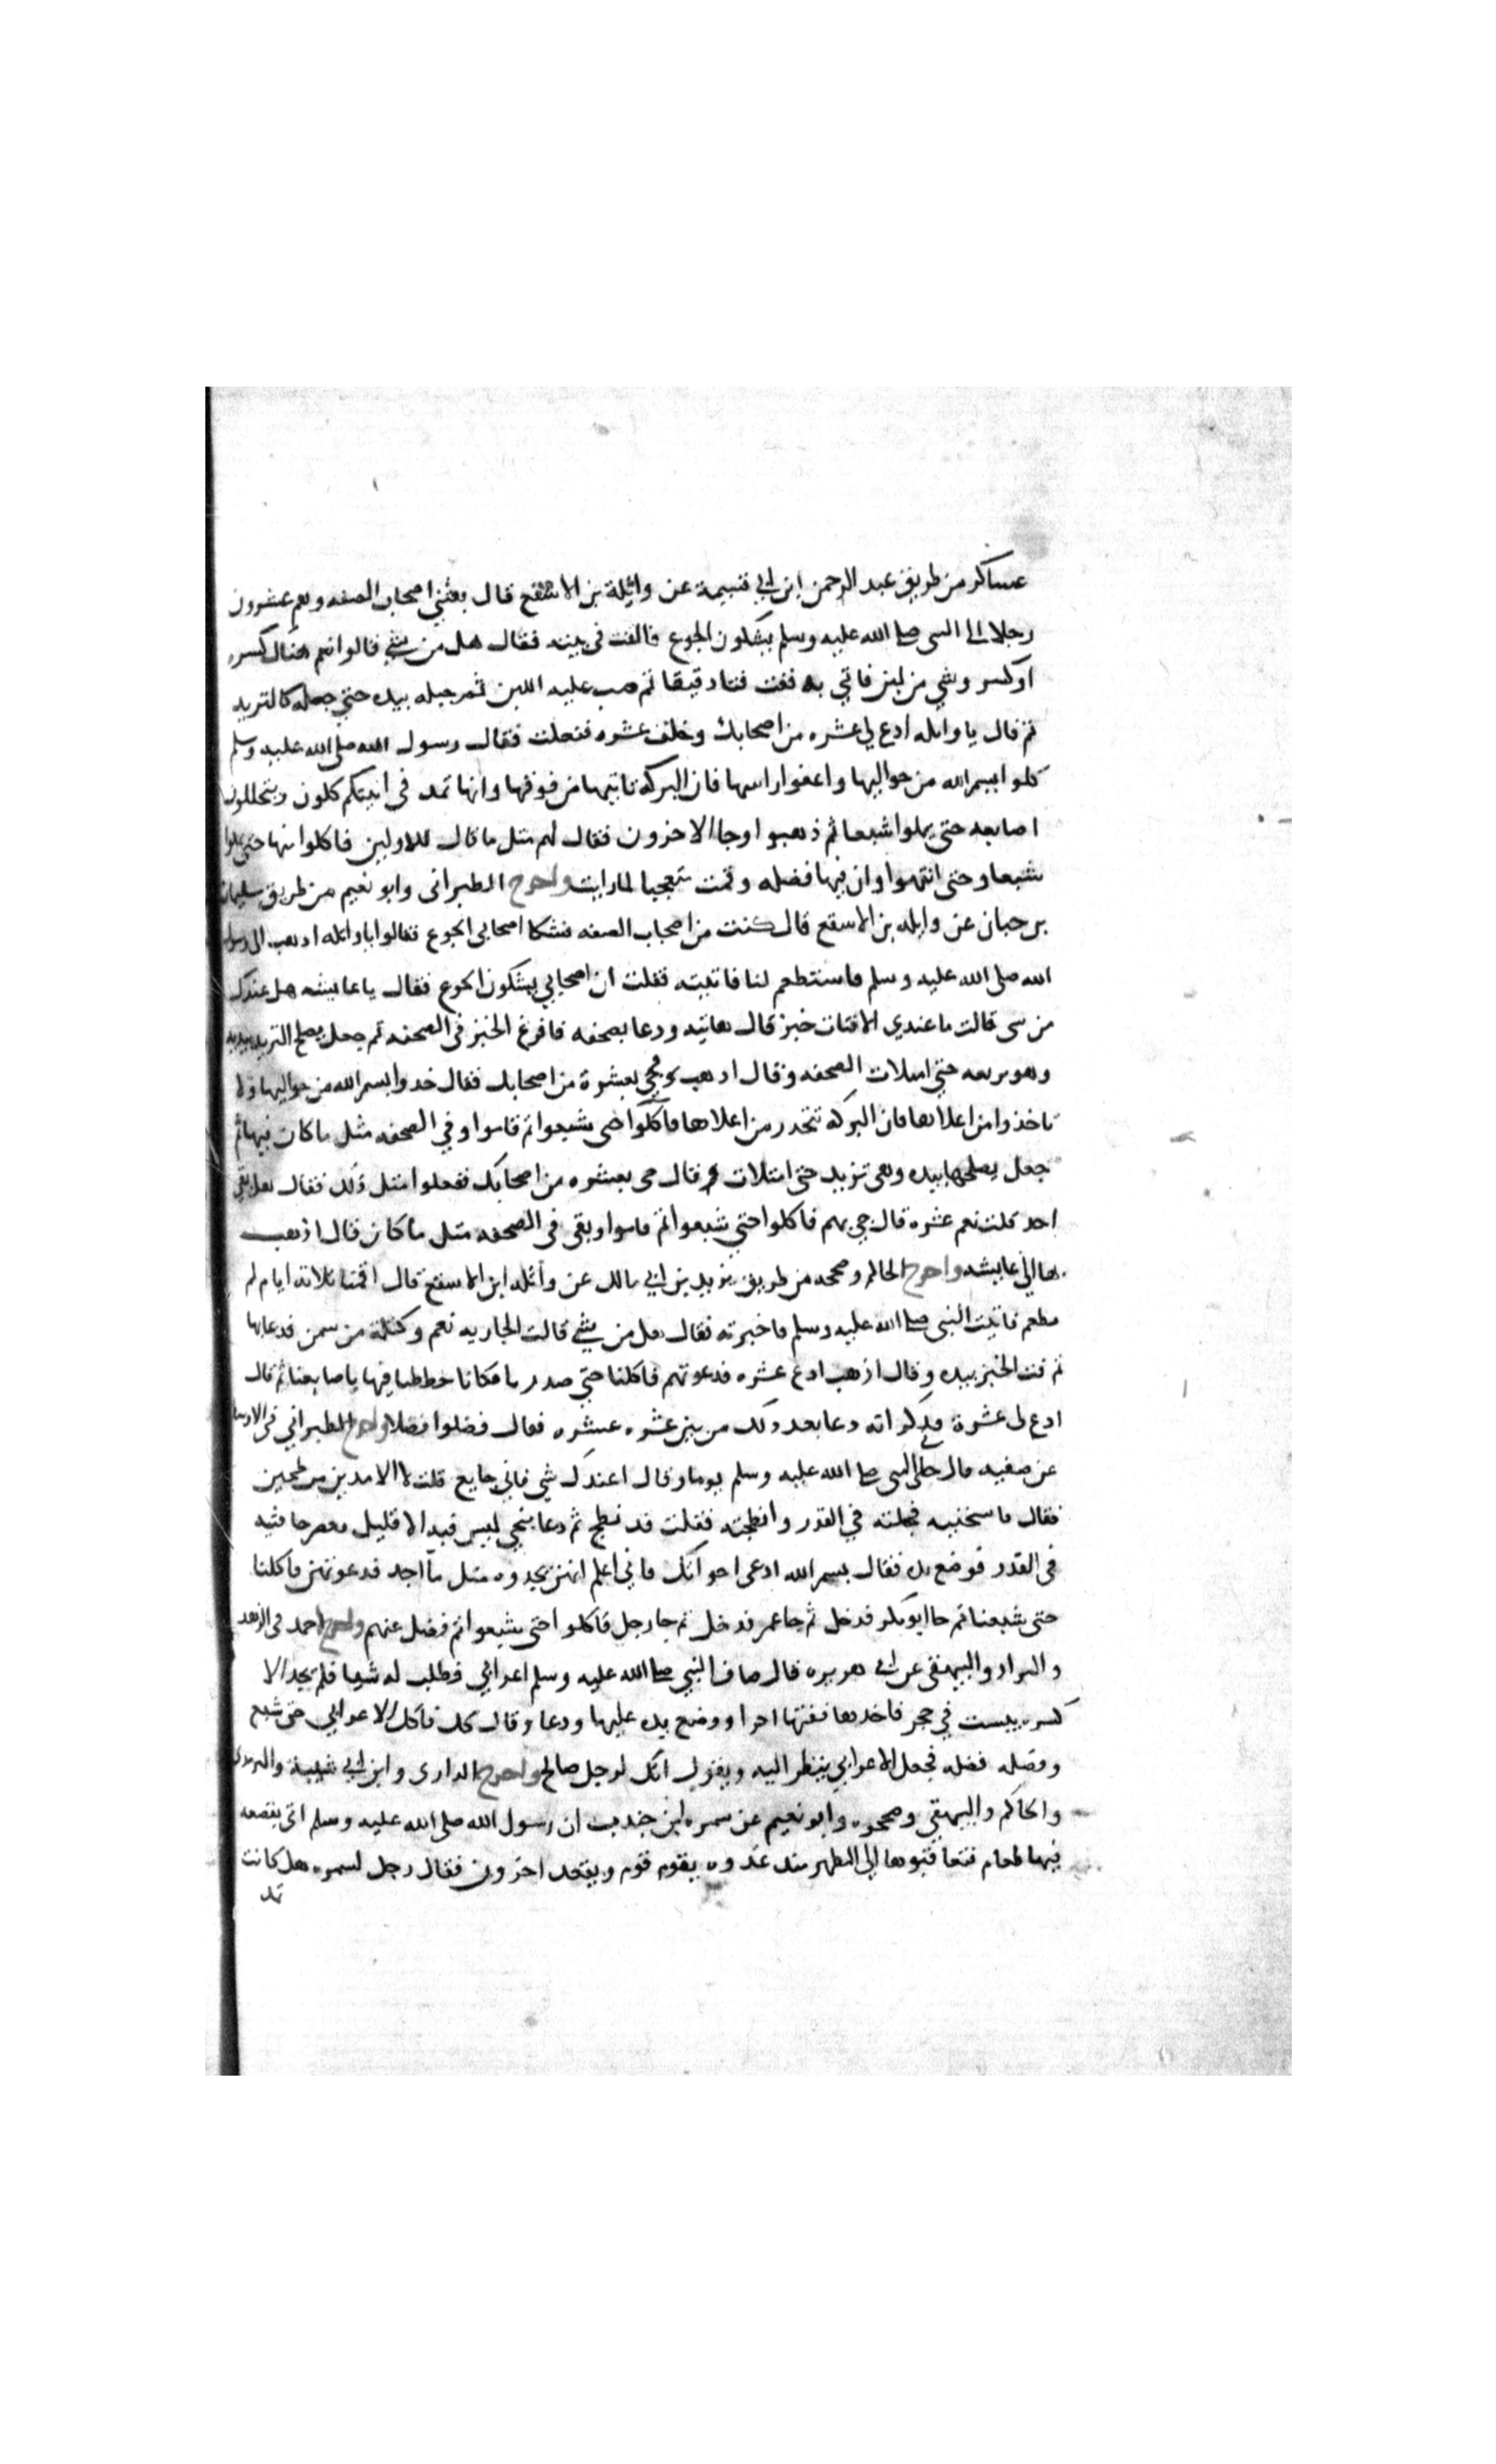 عساكر من طريق عبد الرحمن ابن ابي قسيمة عن واثلة بن الاسقع قال بعثني اصحاب الصفه وهم عشرون
رجلا الى النبي صلى الله عليه وسلم يشكون الجوع فالتفت في بيته فقال هل من شي قالوا نعم هناك كسره
او كسر وشي من لبن فاتي به ففت فتا دقيقا ثم صب عليه اللبن ثم جبله بيده حتي جعله كالثريد
ثم قال يا واثله ادع لي عشره من اصحابك وخلف عشره ففعلت فقال رسول الله صلى الله عليه وسلم
كلوا بسم الله من حواليها واعفوا راسها فان البركه تاتيها من فوقها وانها تمد فرايتهم ياكلون ويتخللون
اصابعه حتى يملوا شبعا ثم ذهبوا وجا الاخرون فقال لهم مثل ما قال للاولين فاكلوا منها حتى ملوا
شبعا وحتى انتهوا وان فيها فضله وقمت متعجبا لما رايت واخرج الطبراني وابو نعيم من طريق سليمان
بن حبان عن واثله بن الاسقع قال كنت من اصحاب الصفه فشكا اصحابي الجوع فقالوا يا واثله اذهب الى رسول
الله صلى الله عليه وسلم فاستطعم لنا فاتيته فقلت ان اصحابي يشكون الجوع فقال يا عايشه هل عندك
من شي قالت ما عندي الا فتات خبز قال هاتيه ودعا بصحفه فافرغ الخبز في الصحفه ثم جعل يصلح الثريد بيديه
وهو يربو حتى امتلات الصحفه وقال اذهب وجي بعشرة من اصحابك فقال خدوا بسم الله من حواليها ولا
تاخذوا من اعلاها فان البركه تنحدر من اعلاها فاكلوا حتى شبعوا ثم قاموا وفي الصحفه مثل ما كان فيها ثم
جعل يصلحها بيده وهي تزيد حتى امتلات وقال جي بعشره من اصحابك ففعلوا مثل ذلك فقال هل بقي
احد قلت نعم عشره قال جي بهم فاكلوا حتي شبعوا ثم قاموا وبقي في الصحفه مثل ما كان قال اذهب
بها الى عايشه واخرج الحاكم وصححه من طريق يزيد بن ابي مالك عن واثله ابن الاسقع قال اقمنا ثلاثه ايام لم
نطعم فاتيت النبي صلى الله عليه وسلم فاخبرته فقال هل من شي قالت الجاريه نعم وكتلة من سمن فدعا بها
ثم فت الخبز بيده وقال اذهب ادع عشره فدعوتهم فاكلنا حتي صدرنا فكانا خططنا فيها باصابعنا ثم قال
ادع لي عشرة فذكر انه دعا بعد ذلك من بين عشره عشره فقال فضلوا فضلا واخرج الطبراني في الاوسط
عن صفيه قال جا الى النبي صلى الله عليه وسلم يوما وقال اعندك شي فاني جايع قلت لا الا مدين من طحين
فقال فاسخنيه فجعلته في القدر وانضجته فقلت قد نضج ثم دعا بنحي ليس فيه الا قليل فعصر حافتيه
في القدر فوضع يده فقال بسم الله ادعى اخواتك فاني اعلم انهن يجدن مثل ما اجد فدعوتهن فاكلنا
حتى شبعنا ثم جا ابو بكر فدخل ثم جا عمر فدخل ثم جا رجل فاكلوا حتى شبعوا ثم فضل عنهم واخرج احمد في الزهد
والبزار والبيهقي عن ابي هريره قال ضاف النبي صلى الله عليه وسلم اعرابي فطلب له شيا فلم يجد الا
كسره يبست في جحر فاخدها ففتها اجزا ووضع يده عليها ودعا وقال كل فاكل الاعرابي حتى شبع
وفضله فضله فجعل الاعرابي ينظر اليه ويقول انك لرجل صالح واخرج الدارى وابن ابي شيبة والترمذى
والحاكم والبيهقي وصححوه وابو نعيم عن سمره ابن جندب ان رسول الله صلى الله عليه وسلم اتى بقصعه
فيها طعام فتعاقبوها إلى الظهر منذ غدوه يقوم قوم ويقعد اخرون فقال رجل لسمره هل كانت
تمد